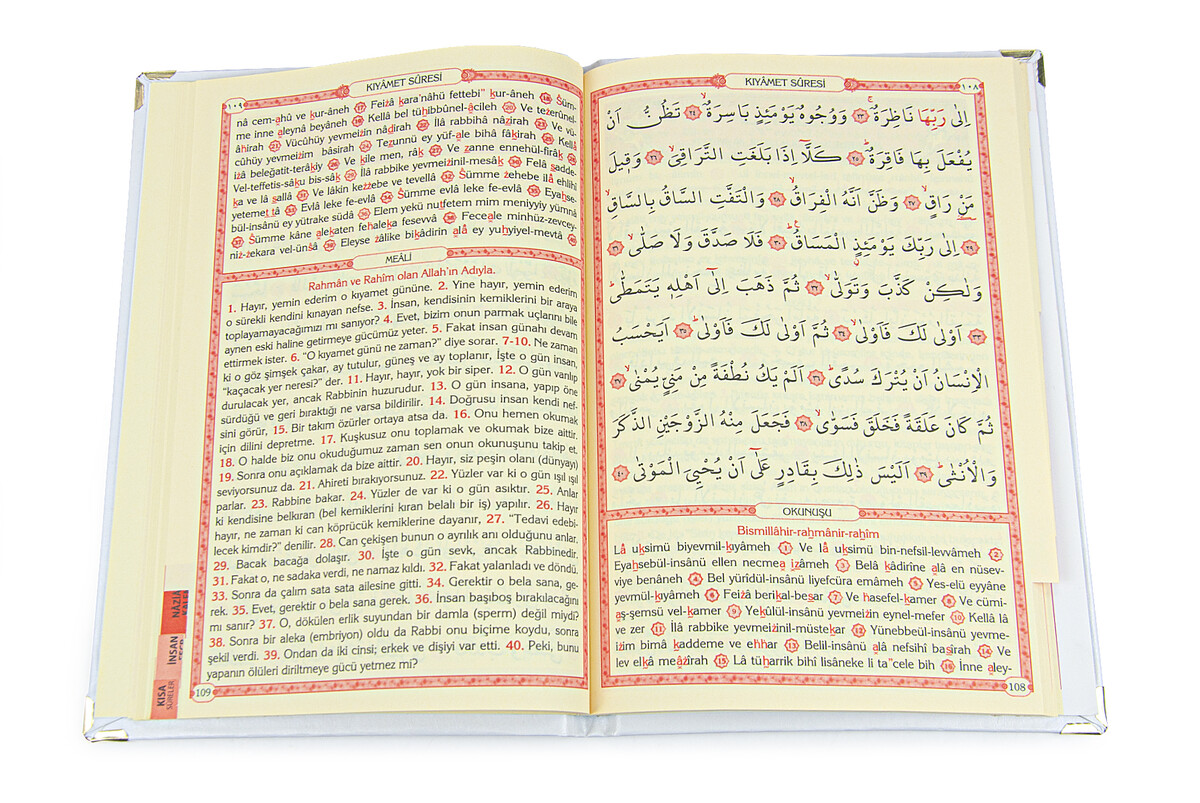 KIYÂMET SÛRESİ
١٠٨
اِلٰى رَبِّهَا نَاظِرَةٌۚ ﴿٢٣﴾ وَوُجُوهٌ يَوْمَئِذٍ بَاسِرَةٌۙ ﴿٢٤﴾ تَظُنُّ اَنْ
يُفْعَلَ بِهَا فَاقِرَةٌۜ ﴿٢٥﴾ كَلَّٓا اِذَا بَلَغَتِ التَّرَاقِيَۙ ﴿٢٦﴾ وَق۪يلَ
مَنْ رَاقٍۙ ﴿٢٧﴾ وَظَنَّ اَنَّهُ الْفِرَاقُۙ ﴿٢٨﴾ وَالْتَفَّتِ السَّاقُ بِالسَّاقِۙ
﴿٢٩﴾ اِلٰى رَبِّكَ يَوْمَئِذٍۨ الْمَسَاقُۜ ﴿٣٠﴾ فَلَا صَدَّقَ وَلَا صَلّٰىۙ ﴿٣١﴾
وَلٰكِنْ كَذَّبَ وَتَوَلّٰىۙ ﴿٣٢﴾ ثُمَّ ذَهَبَ اِلٰٓى اَهْلِه۪ يَتَمَطّٰىۜ
﴿٣٣﴾ اَوْلٰى لَكَ فَاَوْلٰىۙ ﴿٣٤﴾ ثُمَّ اَوْلٰى لَكَ فَاَوْلٰىۜ ﴿٣٥﴾ اَيَحْسَبُ
الْاِنْسَانُ اَنْ يُتْرَكَ سُدًىۜ ﴿٣٦﴾ اَلَمْ يَكُ نُطْفَةً مِنْ مَنِيٍّ يُمْنٰىۙ ﴿٣٧﴾
ثُمَّ كَانَ عَلَقَةً فَخَلَقَ فَسَوّٰىۙ ﴿٣٨﴾ فَجَعَلَ مِنْهُ الزَّوْجَيْنِ الذَّكَرَ
وَالْاُنْثٰىۜ ﴿٣٩﴾ اَلَيْسَ ذٰلِكَ بِقَادِرٍ عَلٰٓى اَنْ يُحْيِيَ الْمَوْتٰى ﴿٤٠﴾
OKUNUŞU
Bismillâhir-rahmânir-rahîm
Lâ uksimü biyevmil-kıyâmeh 1 Ve lâ uksimü bin-nefsil-levvâmeh 2
Eyahsebül-insânü ellen necmea izâmeh 3 Belâ kâdirîne alâ en nüsev-
viye benâneh 4 Bel yürîdül-insânü liyefcüra emâmeh 5 Yes-elü eyyâne
yevmül-kıyâmeh 6 Feizâ berikal-besar 7 Ve hasefel-kamer 8 Ve cümi-
aş-şemsü vel-kamer 9 Yekûlül-insânü yevmeizin eynel-mefer 10 Kellâ lâ
ve zer 11 İlâ rabbike yevmeizinil-müstekar 12 Yünebbeül-insânü yevme-
izim bimâ kaddeme ve ehhar 13 Belil-insânü alâ nefsihî basîrah 14 Ve
lev elkâ meâzîrah 15 Lâ tüharrik bihî lisâneke li ta"cele bih 16 İnne aley-
108
KIYÂMET SÛRESİ
١٠٩
nâ cem-ahû ve kur-âneh 17 Feizâ kara'nâhü fettebi" kur-âneh 18 Süm-
me inne aleynâ beyâneh 19 Kellâ bel tühibbûnel-âcileh 20 Ve tezerûnel-
âhirah 21 Vücûhüy yevmeizin nâdirah 22 İlâ rabbihâ nâzirah 23 Ve vü-
cûhüy yevmeizim bâsirah 24 Tezunnü ey yüf-ale bihâ fâkirah 25 Kellâ
izâ beleğatit-terâkıy 26 Ve kîle men, râk 27 Ve zanne ennehül-firâk 28
Vel-teffetis-sâku bis-sâk 29 İlâ rabbike yevmeizinil-mesâk 30 Felâ sadde-
ka ve lâ sallâ 31 Ve lâkin kezzebe ve tevellâ 32 Sümme zehebe ilâ ehlihî
yetemettâ 33 Evlâ leke fe-evlâ 34 Sümme evlâ leke fe-evlâ 35 Eyahse-
bül-insânü ey yütrake südâ 36 Elem yekü nutfetem mim meniyyiy yümnâ
37 Sümme kâne alekaten fehaleka fesevvâ 38 Feceale minhüz-zevcey-
niz-zekara vel-ünsâ 39 Eleyse zâlike bikâdirin alâ ey yuhyiyel-mevtâ 40
MEÂLİ
Rahmân ve Rahîm olan Allah'ın Adıyla.
1. Hayır, yemin ederim o kıyamet gününe. 2. Yine hayır, yemin ederim
o sürekli kendini kınayan nefse. 3. İnsan, kendisinin kemiklerini bir araya
toplayamayacağımızı mı sanıyor? 4. Evet, bizim onun parmak uçlarını bile
aynen eski haline getirmeye gücümüz yeter. 5. Fakat insan günahı devam
ettirmek ister. 6. "O kıyamet günü ne zaman?" diye sorar. 7-10. Ne zaman
ki o göz şimşek çakar, ay tutulur, güneş ve ay toplanır, İşte o gün insan,
"kaçacak yer neresi?" der. 11. Hayır, hayır, yok bir siper. 12. O gün vanlıp
durulacak yer, ancak Rabbinin huzurudur. 13. O gün insana, yapıp öne
sürdüğü ve geri bıraktığı ne varsa bildirilir. 14. Doğrusu insan kendi nef-
sini görür, 15. Bir takım özürler ortaya atsa da. 16. Onu hemen okumak
için dilini depretme. 17. Kuşkusuz onu toplamak ve okumak bize aittir.
18. O halde biz onu okuduğumuz zaman sen onun okunuşunu takip et.
19. Sonra onu açıklamak da bize aittir. 20. Hayır, siz peşin olanı (dünyayı)
seviyorsunuz da. 21. Ahireti bırakıyorsunuz. 22. Yüzler var ki o gün ışıl ışıl
parlar. 23. Rabbine bakar. 24. Yüzler de var ki o gün asıktır. 25. Anlar
ki kendisine belkıran (bel kemiklerini kıran belalı bir iş) yapılır. 26. Hayır
hayır, ne zaman ki can köprücük kemiklerine dayanır, 27. "Tedavi edebi-
lecek kimdir?" denilir. 28. Can çekişen bunun o ayrılık anı olduğunu anlar.
29. Bacak bacağa dolaşır. 30. İşte o gün sevk, ancak Rabbinedir.
31. Fakat o, ne sadaka verdi, ne namaz kıldı. 32. Fakat yalanladı ve döndü.
33. Sonra da çalım sata sata ailesine gitti. 34. Gerektir o bela sana, ge-
rek. 35. Evet, gerektir o bela sana gerek. 36. İnsan başıboş bırakılacağını
mı sanır? 37. O, dökülen erlik suyundan bir damla (sperm) değil miydi?
38. Sonra bir aleka (embriyon) oldu da Rabbi onu biçime koydu, sonra
şekil verdi. 39. Ondan da iki cinsi; erkek ve dişiyi var etti. 40. Peki, bunu
yapanın ölüleri diriltmeye gücü yetmez mi?
109
NÂZİA
İNSAN
KISA
SÛRELER